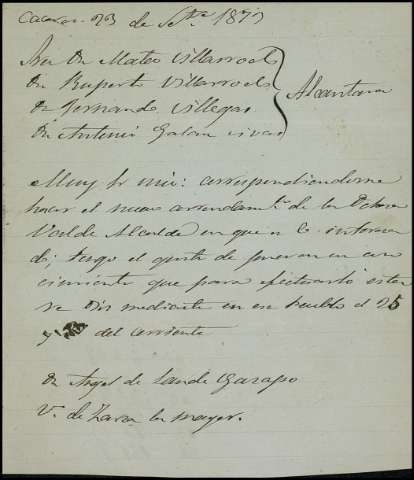 Caceres 23 de Set.e 187
Sr. Dn. Mateo Villarroel
Dn. Ruperto Villarroel
Dn. Fernando Villegas
Dn. Antonio Galan vivas
Alcantara
Muy Sr. mio: correspondiendome
hacer el nuevo arrendam.to de la Dehesa
Val de Alcalde en que V. es interesa
do, tengo el gusto de poner en su co
cimiento que para efectuarlo estare
Dios mediante en ese pueblo el 25
y del corriente
Dn. Angel de Sande Garapo
V.a de Zarza la mayor.